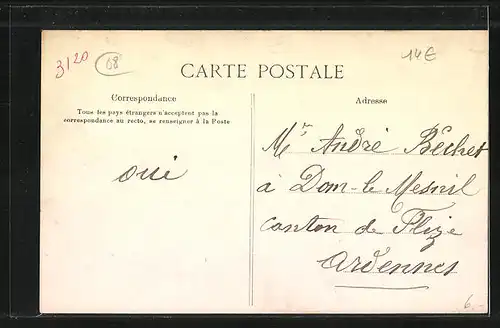 3120
08
14€
CARTE POSTALE
Correspondance
Tous les pays étrangers n'acceptent pas la
correspondance au recto, se renseigner à la Poste
oui
Adresse
Mr André Béchet
à Dom-le-Mesnil
canton de Flize
Ardennes
6.-